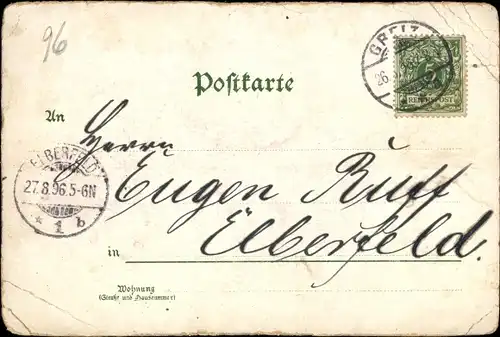 96
GREIZ
26
5
REICHSPOST
Postkarte
An
Herrn
ELBERFELD
27.8.96.5-6N
* 1 b
Eugen Ruff
in Elberfeld.
Wohnung
(Straße und Hausnummer)